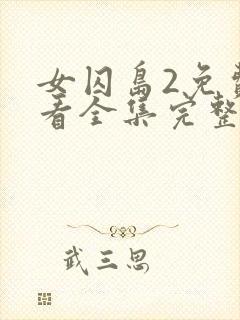 女囚岛2免费
看全集完整
武三思